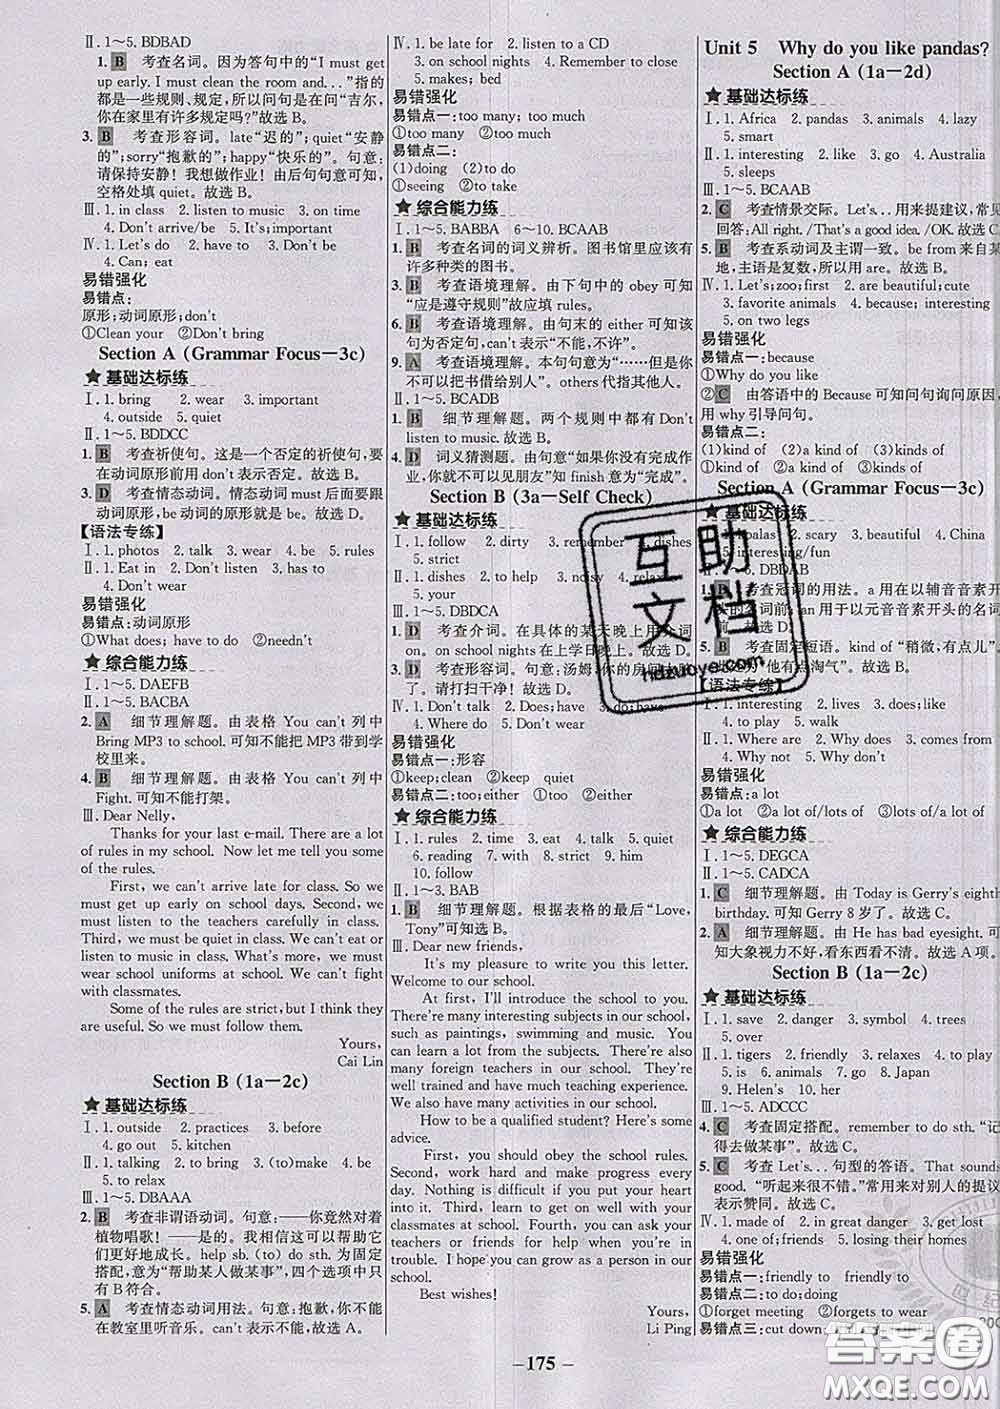 Ⅱ. 1～5. BDBAD
1. B 考查名词。因为答句中的“I must get up early. I must clean the room and…”指的都是一些规则、规定,所以问句是在问“吉尔,你在家里有许多规定吗?”故选 B。
3. B 考查形容词。late“迟的”;quiet“安静的”;sorry“抱歉的”;happy“快乐的”。句意:请保持安静! 我想做作业! 由后句句意可知,空格处填 quiet。故选 B。
Ⅲ. 1. in class 2. listen to music 3. on time
4. Don't arrive/be 5. It's; important
Ⅳ. 1. Let's do 2. have to 3. Don't be
4. Can; eat
易错强化
易错点:
原形;动词原形;don't
①Clean your ②Don't bring
Section A (Grammar Focus—3c)
★基础达标练
Ⅰ. 1. bring 2. wear 3. important
4. outside 5. quiet
Ⅱ. 1～5. BDDCC
1. B 考查祈使句。这是一个否定的祈使句,要在动词原形前用 don't 表示否定。故选 B。
3. D 考查情态动词。情态动词 must 后面要跟动词原形,be 动词的原形就是 be。故选 D。
【语法专练】
Ⅰ. 1. photos 2. talk 3. wear 4. be 5. rules
Ⅱ. 1. Eat in 2. Don't 3. Does; have to
4. Don't wear
易错强化
易错点:动词原形
①What does; have to do ②needn't
★综合能力练
Ⅰ. 1～5. DAEFB
Ⅱ. 1～5. BACBA
2. A 细节理解题。由表格 You can't 列中 Bring MP3 to school. 可知不能把 MP3 带到学校里来。
4. B 细节理解题。由表格 You can't 列中 Fight. 可知不能打架。
Ⅲ. Dear Nelly,
Thanks for your last e-mail. There are a lot of rules in my school. Now let me tell you some of the rules.
First, we can't arrive late for class. So we must get up early on school days. Second, we must listen to the teachers carefully in class. Third, we must be quiet in class. We can't eat or listen to music in class. What's more, we must wear school uniforms at school. We can't fight with classmates.
Some of the rules are strict, but I think they are useful. So we must follow them.
Yours,
Cai Lin
Section B (1a—2c)
★基础达标练
Ⅰ. 1. outside 2. practices 3. before
4. go out 5. kitchen
Ⅱ. 1. talking 2. to bring 3. (to)make 4. be
5. relaxing
Ⅲ. 1～5. DBAAA
2. B 考查非谓语动词。句意:——你竟然对着植物唱歌! ——是的。我相信这可以帮助它们更好地成长。help sb. (to) do sth. 为固定搭配,意为“帮助某人做某事”,四个选项中只有 B 符合。
5. A 考查情态动词用法。句意:抱歉,你不能在教室里听音乐。can't 表示不能。故选 A。
Ⅳ. 1. be late for 2. listen to a CD
3. on school nights 4. Remember to close
5. makes; bed
易错强化
易错点一:too many; too much
①too many ②too much
易错点二:
(1)doing (2)to do
①seeing ②to take
★综合能力练
Ⅰ. 1～5. BABBA 6～10. BCAAB
1. B 考查名词的词义辨析。图书馆里应该有许多种类的图书。
3. B 考查语境理解。由下句中的 obey 可知“应是遵守规则”故应填 rules。
6. B 考查语境理解。由句末的 either 可知该句为否定句,can't 表示“不能,不许”。
9. A 考查语境理解。本句句意为“……但是你不可以把书借给别人”。others 代指其他人。
Ⅱ. 1～5. BCADB
1. B 细节理解题。两个规则中都有 Don't listen to music. 故选 B。
4. D 词义猜测题。由句意“如果你没有完成作业,你就不可以见朋友”知 finish 意为“完成”。
Section B (3a—Self Check)
★基础达标练
Ⅰ. 1. follow 2. dirty 3. remember 4. dishes
5. strict
Ⅱ. 1. dishes 2. to help 3. noisy 4. relax
5. your
Ⅲ. 1～5. DBDCA
1. D 考查介词。在具体的某天晚上用介词 on。on school nights 在上学日晚上。故选 D。
3. D 考查形容词。句意:汤姆,你的房间太脏了。请打扫干净! 故选 D。
Ⅳ. 1. Don't talk 2. Does; have 3. do; have
4. Where do 5. Don't wear
易错强化
易错点一:形容
①keep; clean ②keep quiet
易错点二:too; either ①too ②either
★综合能力练
Ⅰ. 1. rules 2. time 3. eat 4. talk 5. quiet
6. reading 7. with 8. strict 9. him
10. follow
Ⅱ. 1～3. BAB
1. B 细节理解题。根据表格的最后“Love, Tony”可知选 B。
Ⅲ. Dear new friends,
It's my pleasure to write you this letter. Welcome to our school.
At first, I'll introduce the school to you. There're many interesting subjects in our school, such as paintings, swimming and music. You can learn a lot from the subjects. There are also many foreign teachers in our school. They're well trained and have much teaching experience. We also have many activities in our school.
How to be a qualified student? Here's some advice.
First, you should obey the school rules. Second, work hard and make progress every day. Nothing is difficult if you put your heart into it. Third, learn to get on well with your classmates at school. Fourth, you can ask teachers or friends for help when you're in trouble. I hope you can grow as a person in our school.
Best wishes!
Yours,
Li Ping
Unit 5 Why do you like pandas?
Section A (1a—2d)
★基础达标练
Ⅰ. 1. Africa 2. pandas 3. animals 4. lazy
5. smart
Ⅱ. 1. interesting 2. like 3. go 4. Australia
5. sleeps
Ⅲ. 1～5. BCAAB
2. C 考查情景交际。Let's… 用来提建议,常见回答:All right. /That's a good idea. /OK. 故选 C。
5. B 考查系动词及主谓一致。be from 来自某地,主语是复数,所以用 are。故选 B。
Ⅳ. 1. Let's; zoo; first 2. are beautiful; cute
3. favorite animals 4. because; interesting
5. on two legs
易错强化
易错点一:because
①Why do you like
②C 由答语中的 Because 可知问句询问原因,用 why 引导问句。
易错点二:
(1)kind of (2)a kind of (3)kinds of
①kind of ②a kind of ③kinds of
Section A (Grammar Focus—3c)
★基础达标练
2. scary 3. beautiful 4. China
5. interesting/fun
Ⅱ. 1～5. DBDAB
1. B 考查冠词的用法。a 用在以辅音音素开头的名词前;an 用于以元音音素开头的名词前。故选 D。
考查固定短语。kind of “稍微,有点儿”。此处为“他有点淘气”。故选 B。
【语法专练】
Ⅰ. 1. interesting 2. lives 3. does 4. want
4. to play 5. walk
Ⅱ. 1. Where are 2. Why does 3. comes from
4. Why not 5. Why don't
易错强化
易错点:a lot
①a lot ②a lot of/lots of ③lots of/a lot of
★综合能力练
Ⅰ. 1～5. DEGCA
Ⅱ. 1～5. CADCA
1. C 细节理解题。由 Today is Gerry's eighth birthday. 可知 Gerry 8 岁了。故选 C。
2. A 细节理解题。由 He has bad eyesight. 可知大象视力不好,看东西看不清。故选 A 项。
Section B (1a—2c)
★基础达标练
Ⅰ. 1. save 2. danger 3. symbol 4. trees
5. over
Ⅱ. 1. tigers 2. friendly 3. relaxes 4. to play
5. is 6. are 7. is 8. go 8. Japan
9. Helen's 10. her
Ⅲ. 1～5. ADCCC
4. C 考查固定搭配。remember to do sth. “记得去做某事”。故选 C。
5. C 考查 Let's… 句型的答语。That sounds good. “听起来很不错。”常用来对别人的提议表示赞同。故选 C。
Ⅳ. 1. made of 2. in great danger 3. get lost
4. one of; friends 5. losing their homes
易错强化
易错点一:friendly to friendly to
易错点二:to do; doing
①forget meeting ②forgets to wear
易错点三:cut down
互助文档
hdzuoye.com
答案圈
MXQE.COM
—175—